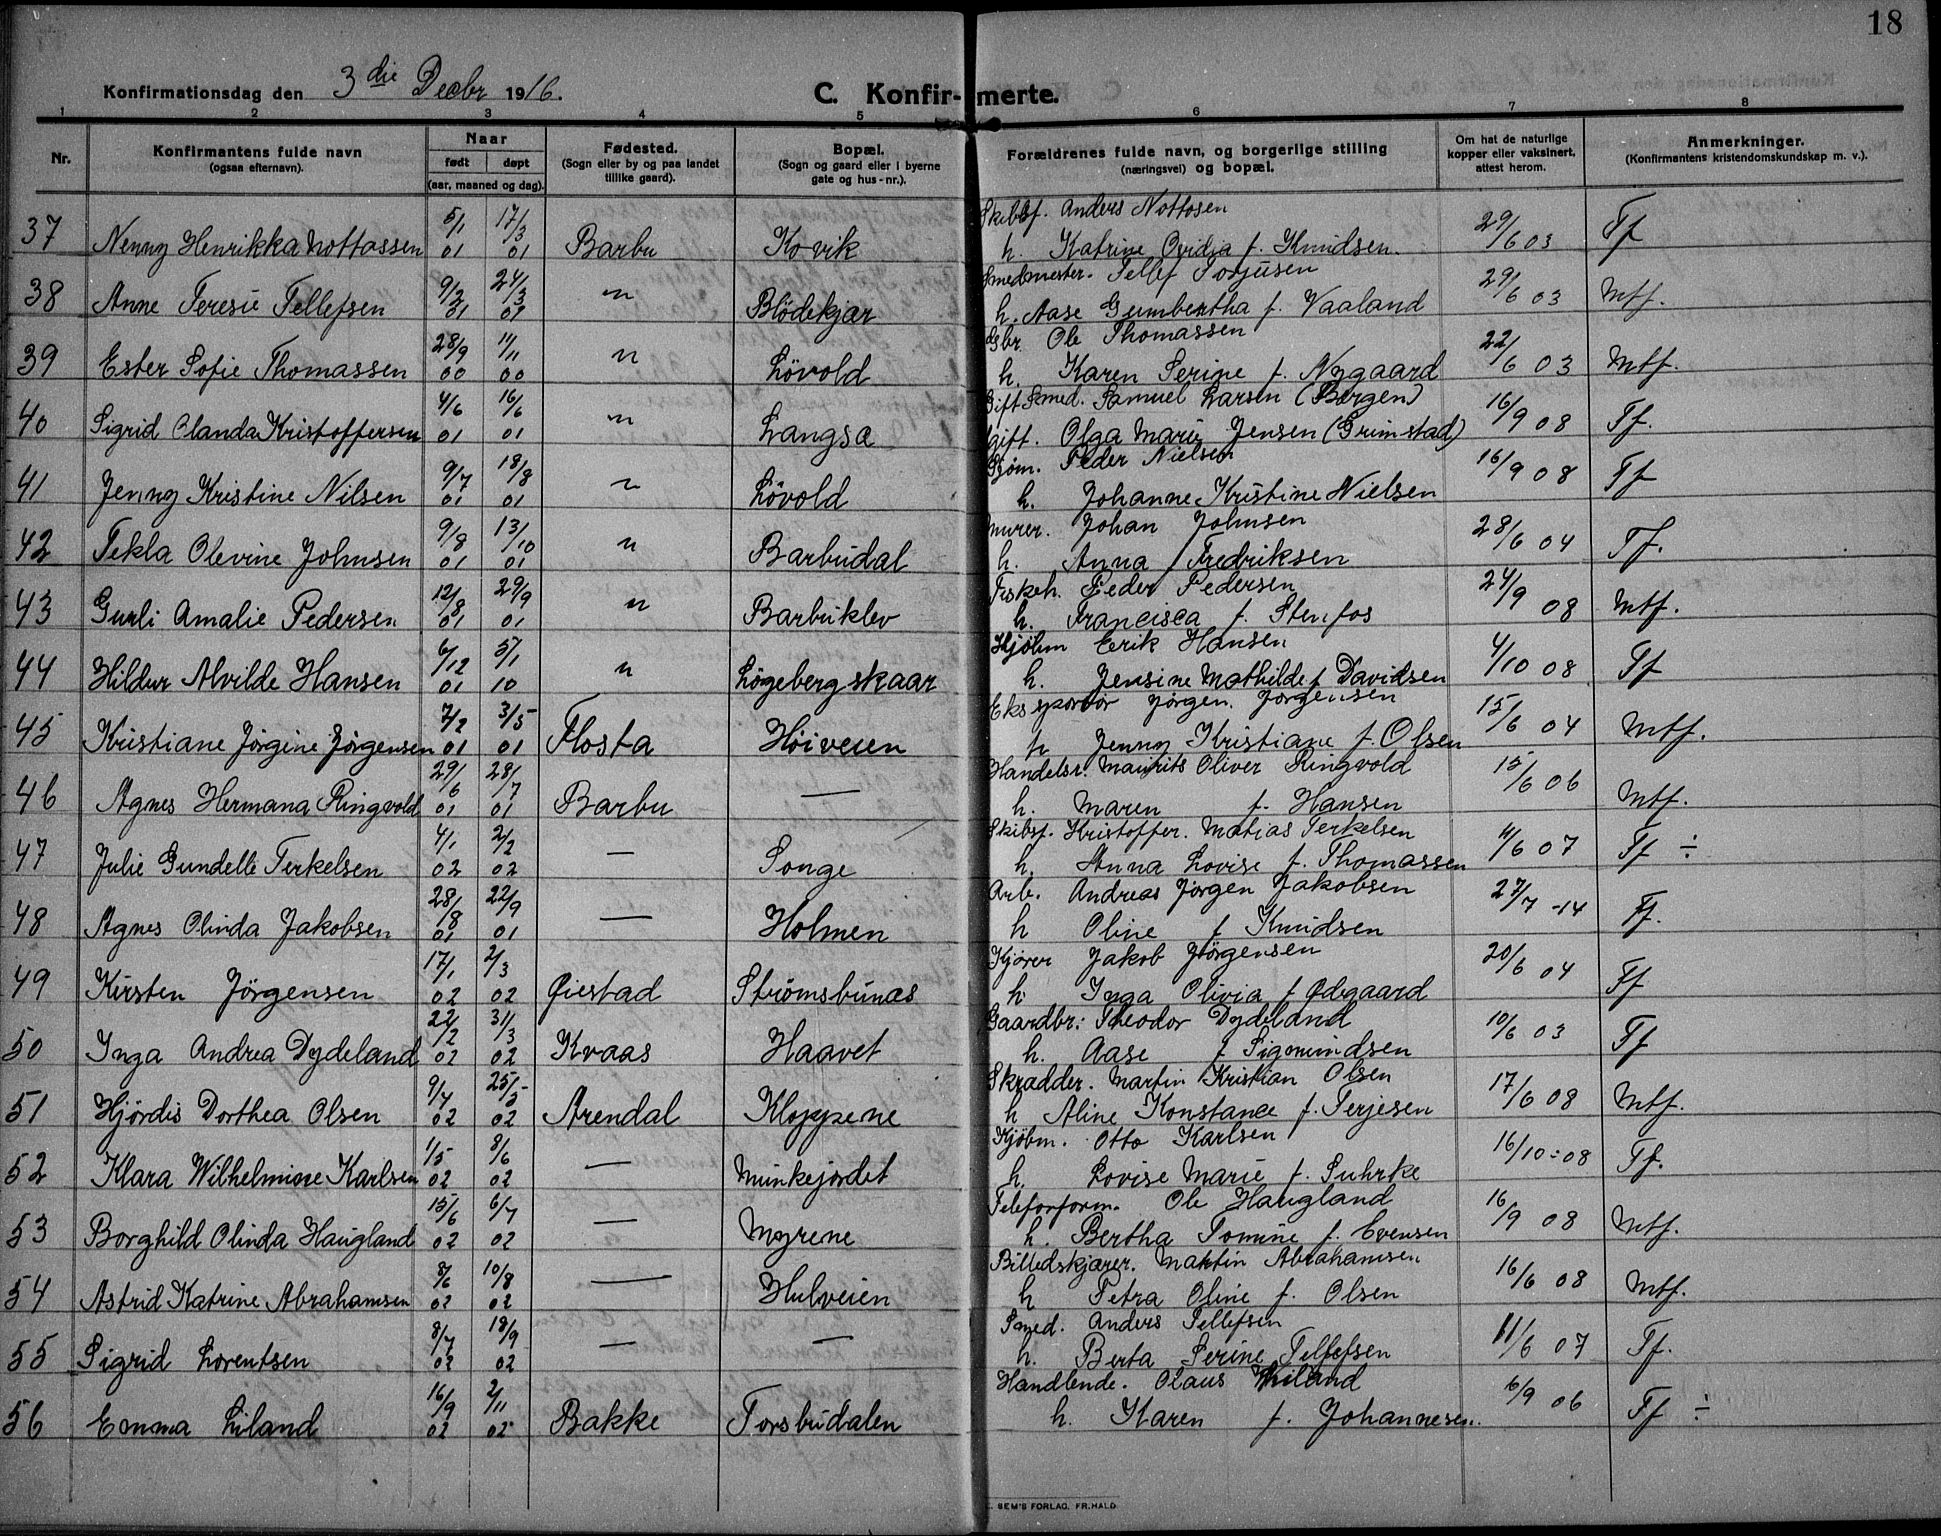 18
Konfirmationsdag den 3die Decbr 1916.
C. Konfirmerte.
1 2 3 4 5 6 7 8
Nr.
Konfirmantens fulde navn
(ogsaa efternavn).
Naar
født døpt
(aar, maaned og dag).
Fødested.
(Sogn eller by og paa landet
tillike gaard).
Bopæl.
(Sogn og gaard eller i byerne
gate og hus-nr.).
Forældrenes fulde navn, og borgerlige stilling
(næringsvei) og bopæl.
Om hat de naturlige
kopper eller vaksinert,
attest herom.
Anmerkninger.
(Konfirmantens kristendomskundskap m. v.).
Skibsf. Anders Nottosen
37 Nenny Henrikka Nottassen 5/1 01 17/3 01 Barbu Kovik h. Katrine Ovidia f. Knudsen. 29/6 03 Tf
Smedmester. Tellef Torjusen
38 Anne Teresie Tellefsen 9/2 01 24/3 01 " Blödekjær h. Aase Gumbertha f. Vaaland 29/6 03 Mtf.
Gbr. Ole Thomassen
39 Ester Sofie Thomassen 28/9 00 11/11 00 " Lövold h. Karen Serine f. Nygaard 22/6 03 Mtf.
Gift Smed. Samuel Larsen (Bergen)
40 Sigrid Olanda Kristoffersen 4/6 01 16/6 01 " Langsæ gift. Olga Marie Jensen (Grimstad) 16/9 08 Tf.
Sjøm. Peder Nielsen
41 Jenny Kristine Nilsen 9/7 01 18/8 01 " Lövold h. Johanne Kristine Nielsen 16/9 08 Tf
Murer. Johan Johnsen
42 Tekla Olevine Johnsen 9/8 01 13/10 01 " Barbudal h. Anna f Fredriksen 28/6 04 Tf.
Fiskeh. Peder Pedersen
43 Gurli Amalie Pedersen 12/8 01 29/9 01 " Barbuklev h. Francisca f. Stenfos 24/9 08 Mtf.
Kjøbm Eerik Hansen
44 Hildur Alvilde Hansen 6/12 01 5/1 10 " Lögebergskaar h. Jensine Mathilde f Davidsen 4/10 08 Tf
Ekspordør Jørgen Jørgensen
45 Kristiane Jørgine Jørgensen 7/2 01 3/5 01 Flosta Høiveien h Jenny Kristiane f. Olsen 15/6 04 Mtf.
Handelsr. Maurits Oliver Ringvold
46 Agnes Hermana Ringvold 29/6 01 28/7 01 Barbu — h. Maren f. Hansen 15/6 06 Mtf.
Skibsf. Kristoffer. Matias Terkelsen
47 Julie Gundelle Terkelsen 4/1 02 2/2 02 — Songe h. Anna Lovise f. Thomassen 11/6 07 Tf ÷
Arb. Andreas Jørgen Jakobsen
48 Agnes Olinda Jakobsen 28/8 01 22/9 01 — Holmen h Oline f Knudsen 27/7 -14 Tf.
Kjører Jakob Jörgensen
49 Kirsten Jörgensen 17/1 02 2/3 02 Øiestad Strømsbunæs h. Inga Olivia f Ødegaard 20/6 04 Tf
Gaardbr: Theodor Dydeland
50 Inga Andrea Dydeland 22/2 02 31/3 02 Kvaas Haavet h. Aase f Sigmundsen 10/6 03 Tf
Skrædder. Martin Kristian Olsen
51 Hjördis Dorthea Olsen 9/4 02 25/5 02 Arendal Kloppene h Aline Konstance f. Terjesen 17/6 08 Mtf.
Kjöbm. Otto Karlsen
52 Klara Wilhelmine Karlsen 1/5 02 8/6 02 — Munkejordet h. Lovise Marie f. Suhrke 16/10-08 Tf.
Telefonform. Ole Haugland
53 Borghild Olinda Haugland 15/6 02 6/7 02 — Myrene h. Bertha Tomine f. Evensen 16/9 08 Mtf.
Billedskjærer. Martin Abrahamsen
54 Astrid Katrine Abrahamsen 8/6 02 10/8 02 — Hulveien h Petra Oline f. Olsen 16/6 08 Mtf.
Smed. Anders Tellefsen
55 Sigrid Lorentsen 8/7 02 18/9 02 — — h. Berta Serine Tellefsen 11/6 07 Tf.
Handlende. Olaus Liland
56 Emma Liland 16/9 02 2/11 02 Bakke Torsbudalen h. Karen f. Johannesen. 6/9 06 Tf ÷
SEM'S FORLAG, FR.HALD